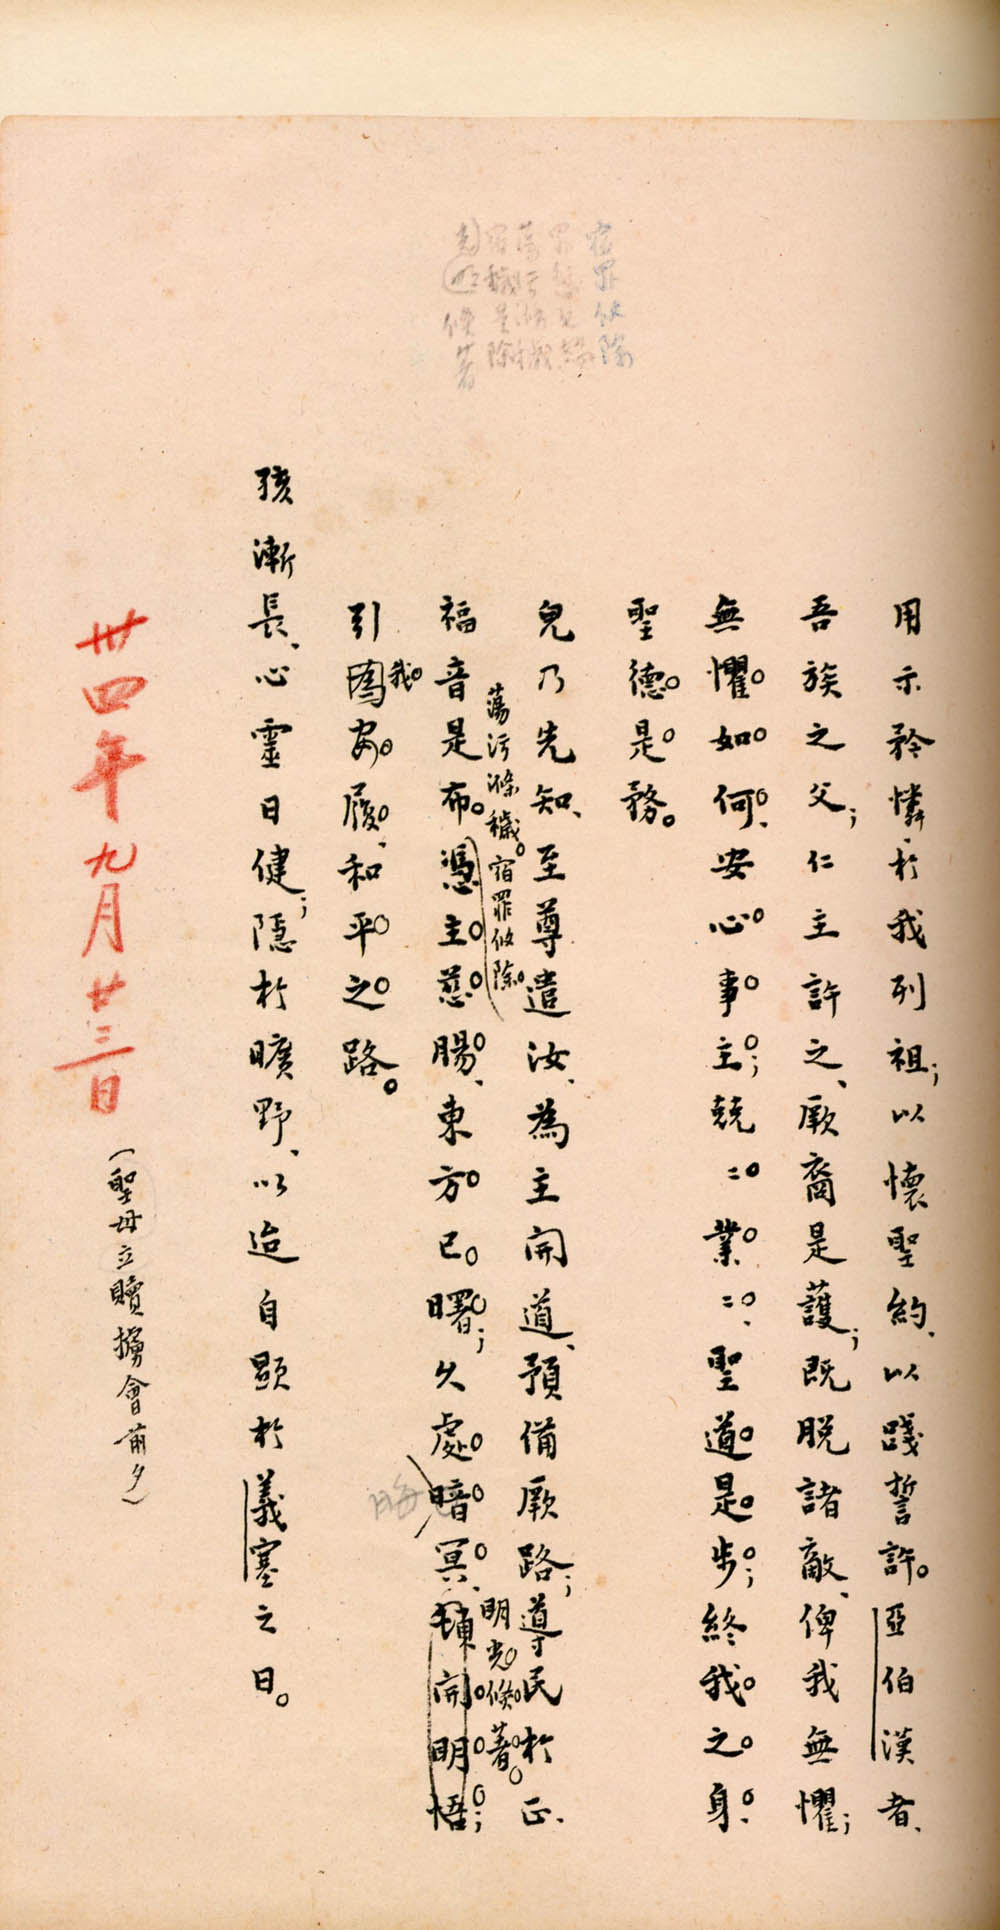 用示矜憐、於我列祖；以懷聖約、以踐誓許。亞伯漢者、
吾族之父；仁主許之、厥裔是護；既脫諸敵、俾我無懼；
無懼如何、安心事主；兢〻業〻、聖道是步；終我之身、
聖德是務。
兒乃先知、至尊遣汝、為主開道、預備厥路；導民於正、
蕩污滌穢。宿罪攸除。
明光倏著。
福音是布。憑主慈腸、東方已曙；久處暗冥、頓開明悟；
晦
我
引安履、和平之路。
孩漸長、心靈日健；隱於曠野、以迨自顯於義塞之日。
卅四年九月廿三日
（聖母立贖擄會前夕）
宿罪攸除
倏著